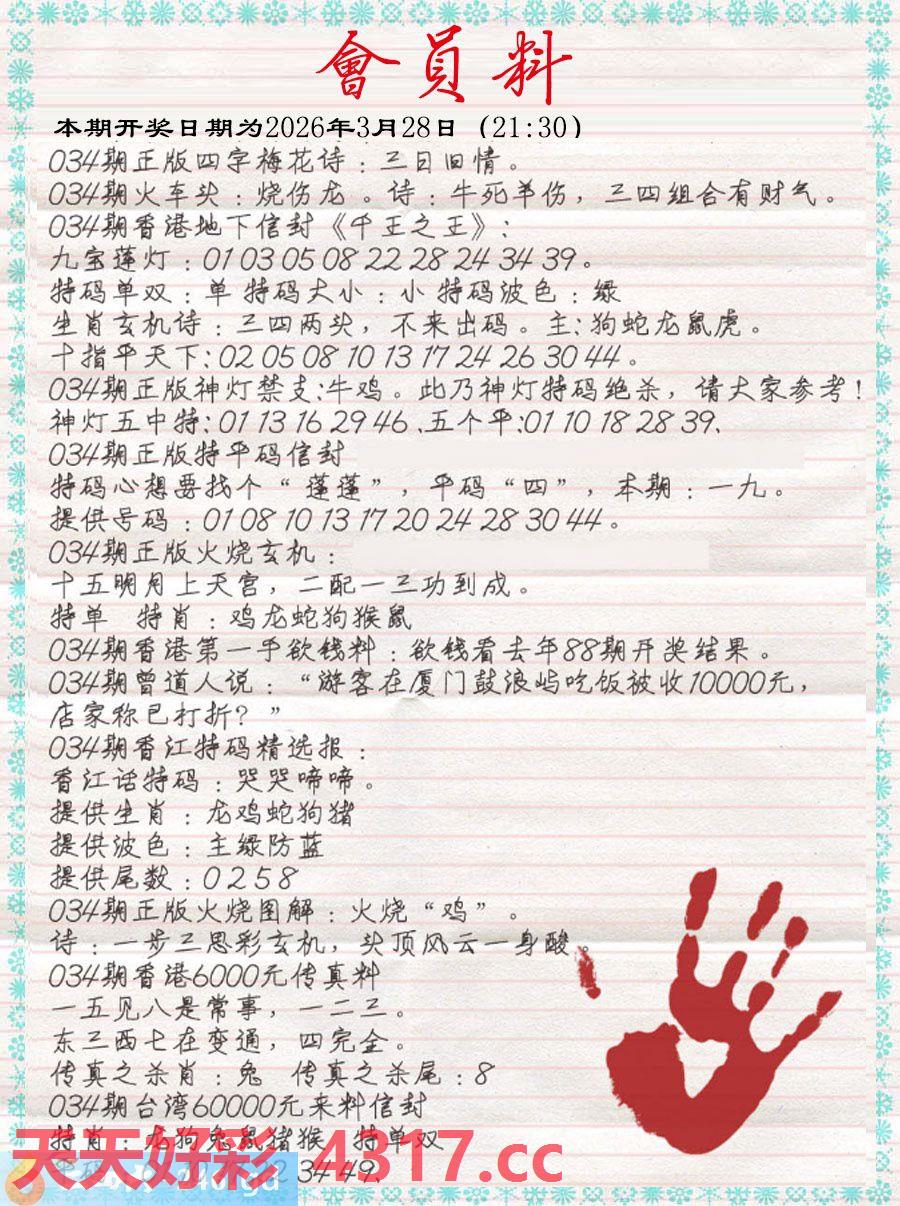 會員料
本期开奖日期为2026年3月28日（21:30）
034期正版四字梅花诗：三日旧情。
034期火车头：烧伤龙。诗：牛死羊伤，三四组合有财气。
034期香港地下信封《千王之王》：
九宝莲灯：01 03 05 08 22 28 24 34 39。
特码单双：单 特码大小：小 特码波色：绿
生肖玄机诗：三四两头，不来出码。主：狗蛇龙鼠虎。
十指平天下：02 05 08 10 13 17 24 26 30 44。
034期正版神灯禁支：牛鸡。此乃神灯特码绝杀，请大家参考！
神灯五中特：01 13 16 29 46、五个平：01 10 18 28 39、
034期正版特平码信封
特码心想要找个“蓬蓬”，平码“四”，本期：一九。
提供号码：01 08 10 13 17 20 24 28 30 44。
034期正版火烧玄机：
十五明月上天宫，二配一三功到成。
特单 特肖：鸡龙蛇狗猴鼠
034期香港第一手欲钱料：欲钱看去年88期开奖结果。
034期曾道人说：“游客在厦门鼓浪屿吃饭被收10000元，
店家称已打折？”
034期香江特码精选报：
香江话特码：哭哭啼啼。
提供生肖：龙鸡蛇狗猪
提供波色：主绿防蓝
提供尾数：0 2 5 8
034期正版火烧图解：火烧“鸡”。
诗：一步三思彩玄机，头顶风云一身酸。
034期香港6000元传真料
一五见八是常事，一二三。
东三西七在变通，四完全。
传真之杀肖：兔 传真之杀尾：8
034期台湾60000元来料信封
特肖：龙狗兔鼠猪猴 特单双
天天好彩 4317.cc
34 49、